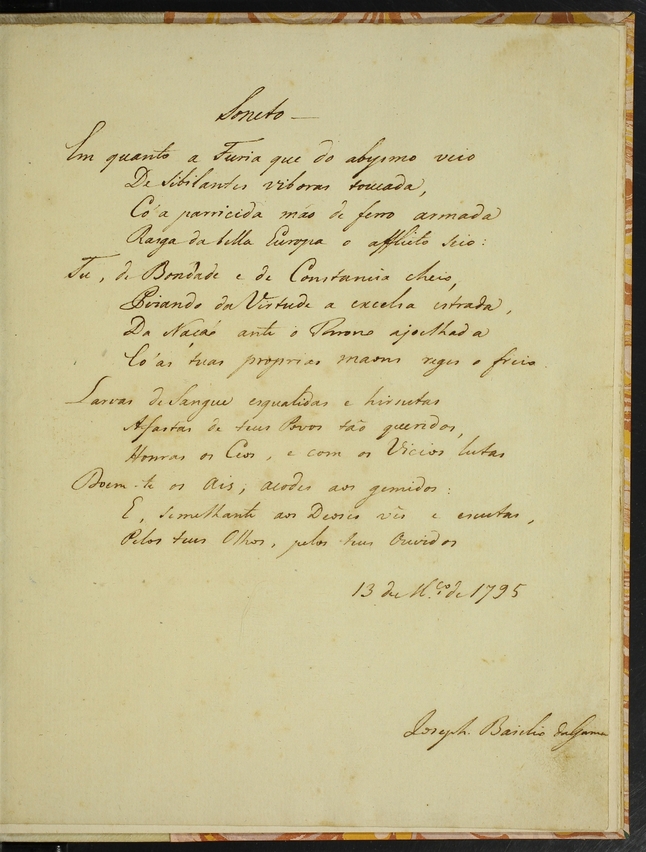 Soneto —
Em quanto a Furia que do abysmo veio
De sibilantes viboras toucada,
Có a parricida mão de ferro armada
Rasga da bella Europa o afflito seio:
Tu, de Bondade e de Constancia cheio,
Pizando da Virtude a excelsa estrada,
Da Nação ante o Throno ajoelhada
Có as tuas proprias maons reges o freio.
Larvas de Sangue esqualidas e hirsutas
Afastas de teus Povos tão queridos,
Honras os Ceos, e com os Vicios lutas
Doem-te os Ais, acodes aos gemidos:
E, semelhante aos Deoses vês e escutas,
Pelos teus Olhos, pelos teus Ouvidos
13 de M.ço de 1795
Joseph Basilio da Gama